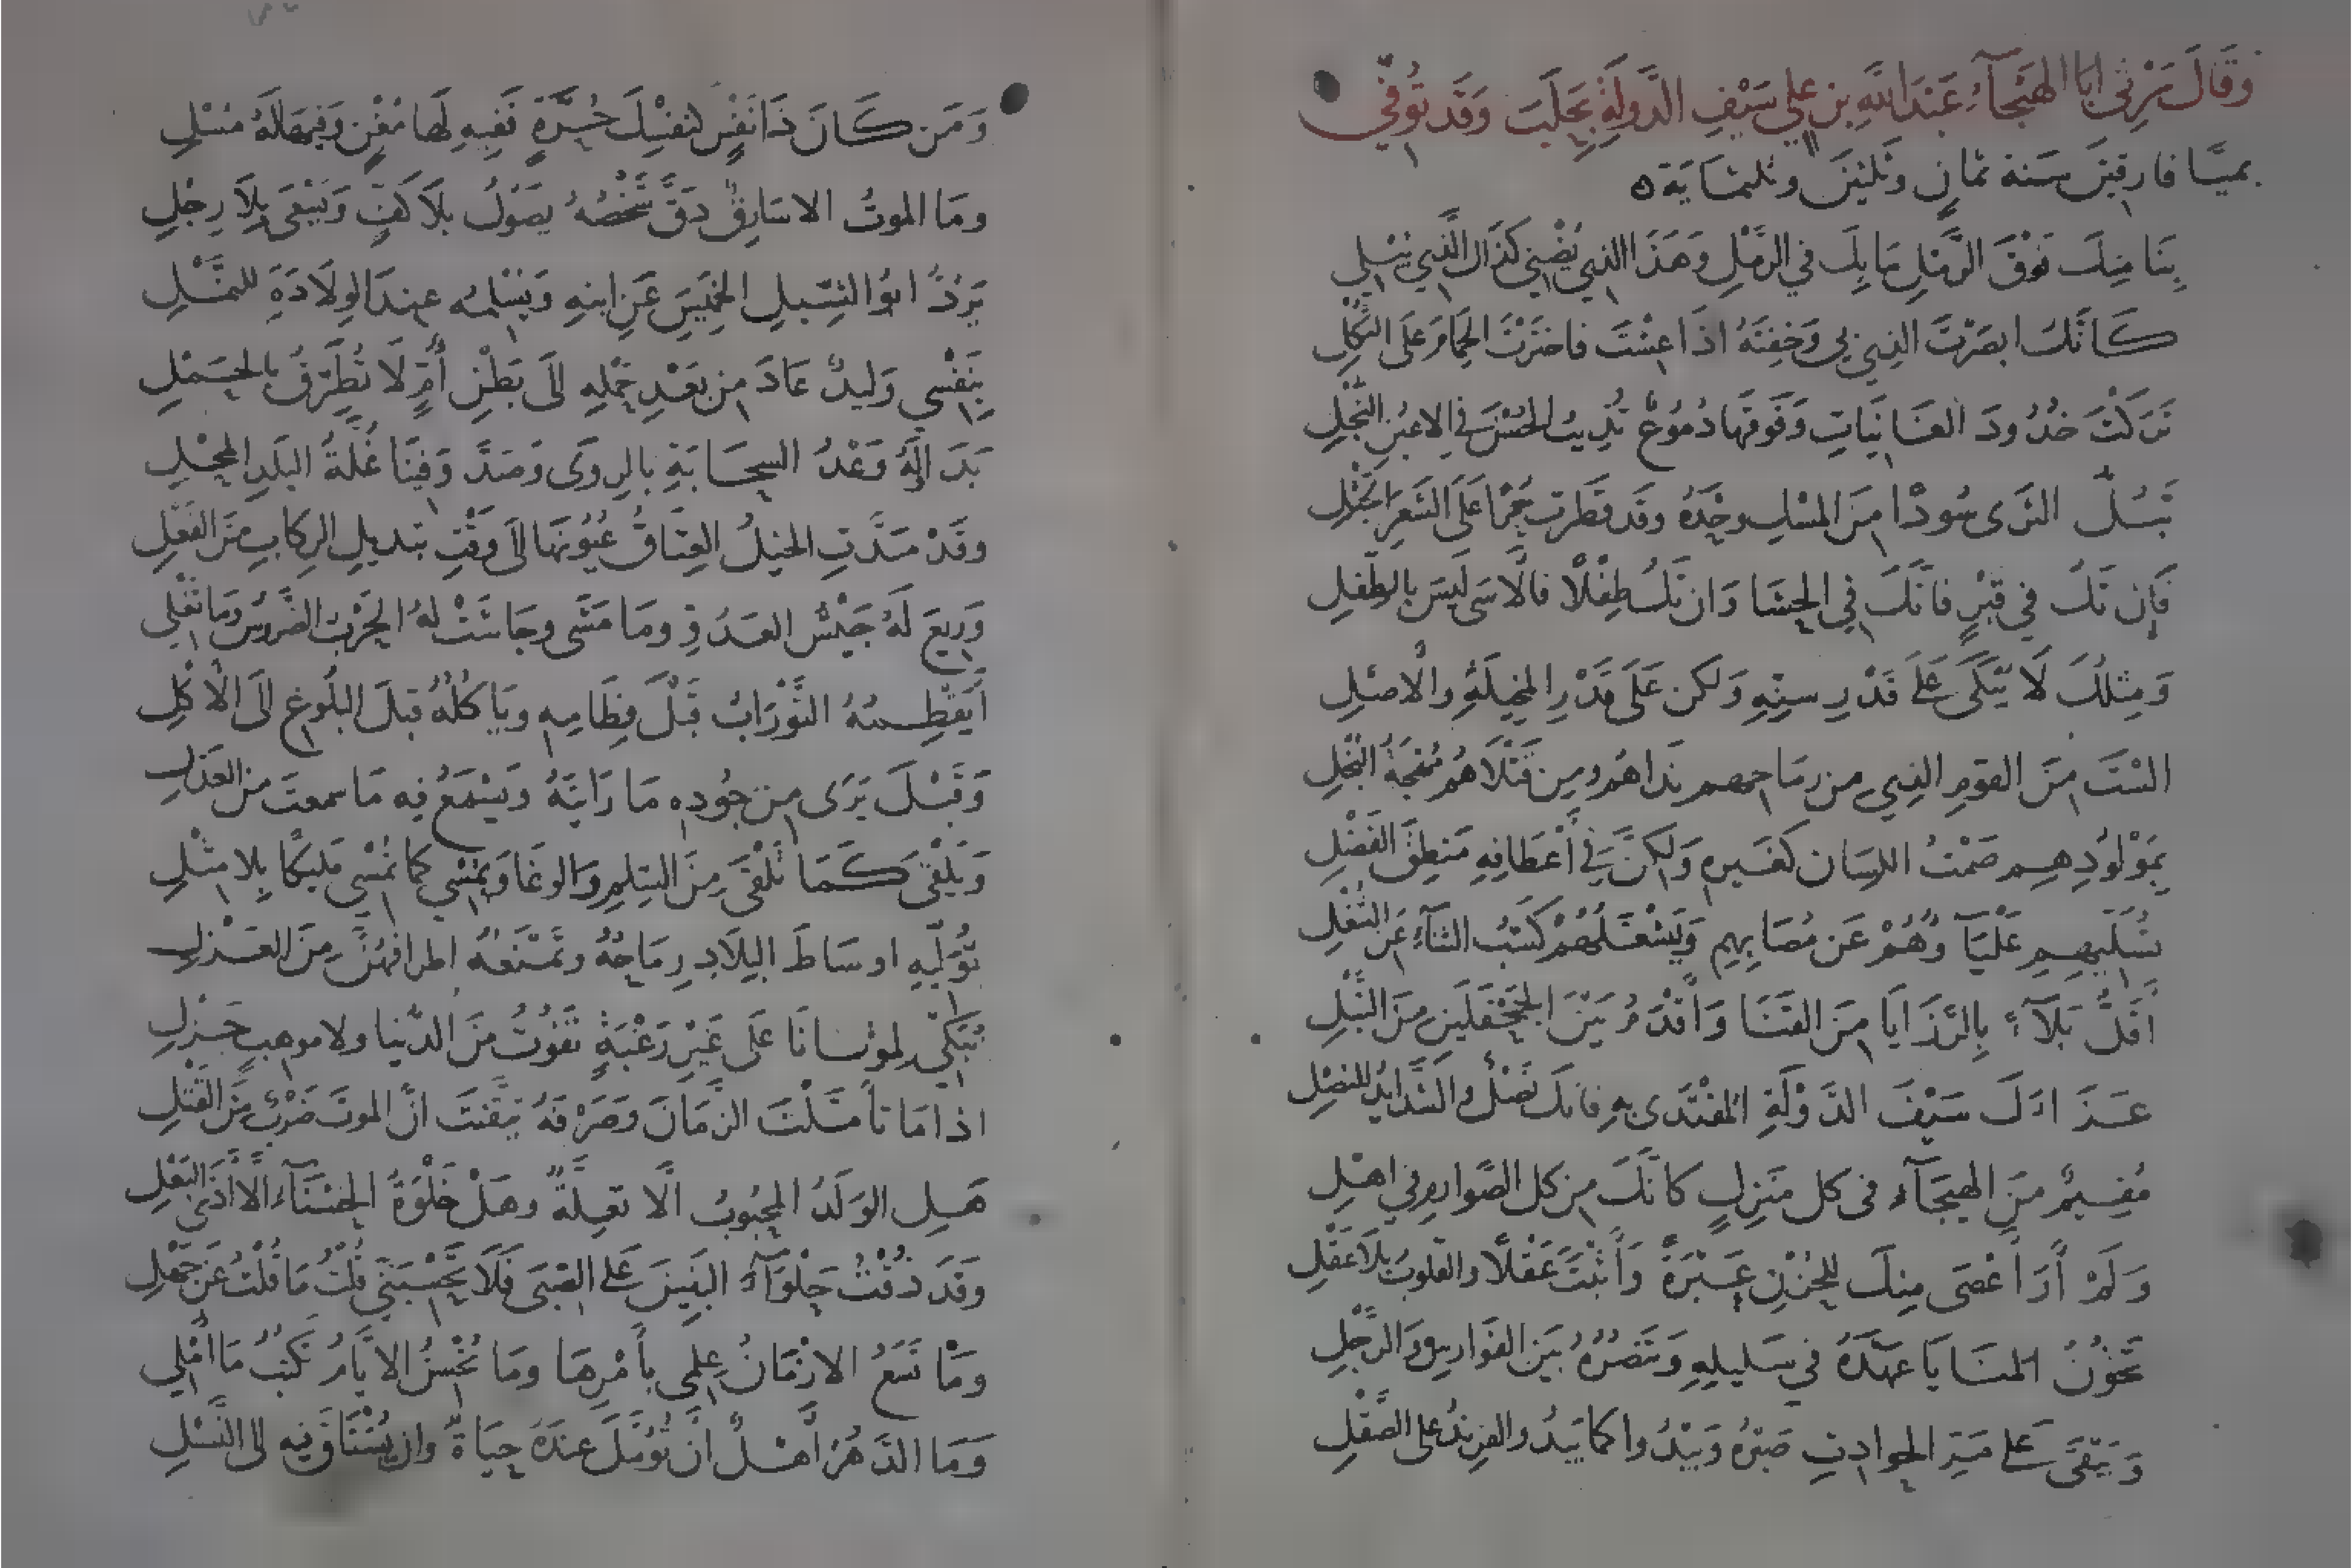 وَقَالَ يَرْثِي ابَا الهَيْجَآءِ عَبْدَ اللهِ بن علي سَيْفِ الدَّولَةِ بِحَلَبَ وَقَد تُوُفِّي
بميَّا فارقينَ سَنة ثمانٍ وثلثينَ وثلثمايَة ه
بِنَا مِنكَ فَوْقَ الرَّمْلِ مَا بِكَ في الرَّمْلِ وَهَذَا الذي يُضْنِي كَذَاكَ الَّذي يُبْلِي
كَأنَّكَ ابصَرْتَ الذِي بي وَخِفتَهُ اذَا عِشْتَ فاختَرْتَ الحِمَامَ عَلَى الثُّكْلِ
تَرَكْتَ خُدُودَ الغَانيَاتِ وَفَوقَهَا دُمُوعٌ تُذِيبُ الحُسْنَ في الاعيُنِ النُّجْلِ
تَبُلُّ الثَرَى سُودًا مِنَ المسْكِ وحْدَهُ وقَد قَطَرت حُمْرًا عَلَى الشَعرِ الجَثْلِ
فَإِن تَكُ في قَبْرٍ فانَّكَ في الحَشَا وَان تَكُ طِفْلًا فالْاسَى لَيسَ بالطِفلِ
وَمِثلُكَ لَا يُبْكَى عَلَى قَدْرِ سِنِّهِ وَلكن عَلَى قَدْرِ المَخِيلَةِ والْاصْلِ
الَسْتَ مِنَ القَومِ الذِي من رمَاحِهم نَدَاهُم ومِن قَتْلَاهُم مُهْجَةُ البُخْلِ
بِمَوْلُودِهِم صَمْتُ اللِسَان كغَيرهِ وَلكِنَّ في أعْطَافِهِ مَنطِقَ الفَضْلِ
تُسَلِّيهِم عَلْيَآؤُهُمْ عَن مُصَابِهِم وَيَشْغَلُهُمْ كَسْبُ الثنَآءِ عَنِ الشُغْلِ
أقَلُّ بَلَآءً بِالرَّزَايَا مِنَ القَنَا وَأقْدَمُ بَيْنَ الجَحْفَلَينِ مِنَ النَّبْلِ
عَزَاءَكَ سَيْفَ الدَوْلَةِ المُقْتَدَى بهِ فانكَ نَصْلٌ والشَّدايدُ للنصْلِ
مُقِيمٌ مِنَ الهيجَآءِ في كل مَنزِلٍ كانَّكَ مِن كل الصَّوارمِ في اهْلِ
وَلَمْ أرَ أعْصَى مِنكَ للحُزْنِ عَبْرَةً وَأثْبَتَ عَقْلًا والقلوبُ بلَا عَقْلِ
تَخُونُ المنَايَا عَهْدَهُ في سَليلِهِ وَتَنصُرُهُ بَيْنَ الفَوَارِسِ وَالرَّجلِ
وَيَبْقَى عَلى مَرِّ الحوادِثِ صَبْرُهُ وَيَبْدُوا كما يَبدُو الفرِندُ على الصَّقْلِ
وَمَن كَانَ ذَا نَفْسٍ كنَفْسِكَ حُرَّةٍ فَفِيهِ لَها مُغْنٍ وَفيهَا لَهُ مُسْلِ
ومَا الموتُ الا سَارِقٌ دَقَّ شَخْصُهُ يصَوُلُ بلَا كَفٍّ وَيَسْعَى بِلَا رِجْلِ
يَرُدُّ ابُو الشِّبلِ الخَمِيسَ عَنِ ابنهِ وَيُسْلمُه عِندَ الوِلَادَةِ للنَّمْلِ
بِنَفْسِي وَليدٌ عَادَ مِن بَعْدِ حَمْلِهِ الَى بَطْنِ أُمٍّ لَا تُطَرِّقُ بالحَمْلِ
بَدَا لَهُ وَعْدُ السحَابَةِ بالرِوَى وَصَدَّ وَفِينَا غُلَّةُ البَلَدِ المَحْلِ
وقَدْ مَدَّتِ الخيلُ العِتَاقُ عُيُونَهَا الَى وَقْتِ تبديلِ الرِكابِ مِنَ النَّعْلِ
وَرِيعَ لَهُ جَيْشُ العَدُوِّ ومَا مَشَى وجَاشَتْ لهُ الحَرْبُ الضَّرُوسُ وَمَا تَغْلِي
أيَفْطِمُهُ التَّوْرَابُ قَبْلَ فِطَامِهِ ويَاكُلُهُ قبلَ البُلُوغِ الَى الْأكْلِ
وَقَبْلَ يَرَى مِن جُودِهِ مَا رَايْتَهُ وَيَسْمَعُ فِيهِ مَا سمعتَ مِنَ العَذلِ
وَيَلْقَى كَمَا تَلْقَى مِنَ السِلمِ وَالوغَا وَيُمْسِي كما تُمْسِي مَليكًا بِلا مِثْلِ
تُوَلِّيهِ اوسَاطَ البِلَادِ رِمَاحُهُ وتَمْنَعُهُ اطرافُهُنَّ مِنَ العَزلِ
تُبَكِّي لموْتَانَا عَلَى غَيْرِ رَغْبَةٍ تَفُوتُ مِنَ الدُّنيا ولا موهبٍ جَزْلِ
اذا مَا تأمَّلْتَ الزَّمَانَ وَصَرْفَهُ تيَقَّنتَ انَّ الموتَ ضَرْبٌ مِنَ القَتْلِ
هَلِ الوَلَدُ المَحْبُوبُ الَّا تعِلَّةٌ وهَلْ خَلْوَةُ الحَسْنَآءِ الَّا أذَى البَعْلِ
وقَدَ ذُقْتُ حَلْوَآءَ البَنِينَ عَلى الصِّبَى فَلَا تَحْسِبَنِّي قُلْتُ مَا قُلْتُ عَن جَهْلِ
وَمَا تَسَعُ الازْمَانُ عِلمي بأمْرِهَا ومَا تُحْسِنُ الايَّامُ تَكتُبُ مَا أُمْلِي
وَمَا الدَهْرُ أهْلٌ انْ تُؤَمَّلَ عندَهُ حيَاةٌ وان يُشْتَاقَ فِيهِ الى النَّسْلِ